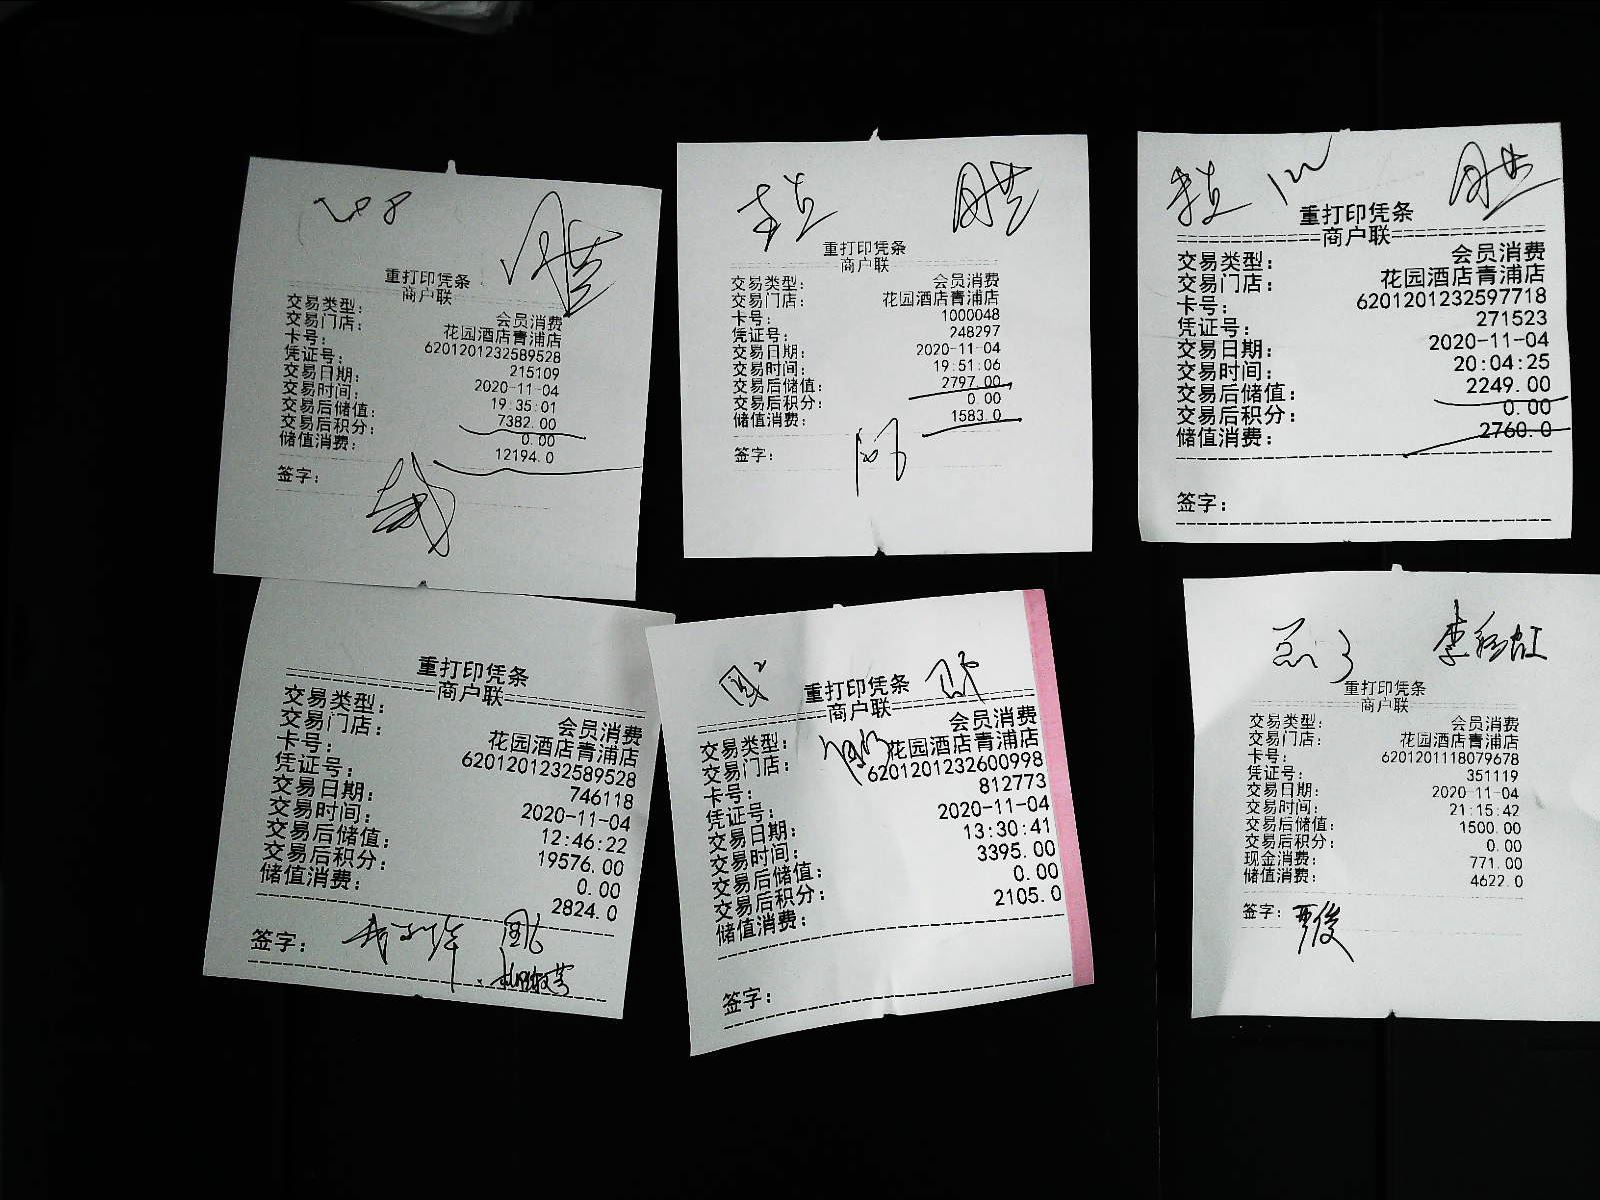 208
重打印凭条
商户联
交易类型： 会员消费
交易门店： 花园酒店青浦店
卡号： 6201201232589528
凭证号： 215109
交易日期： 2020-11-04
交易时间： 19:35:01
交易后储值： 7382.00
交易后积分： 0.00
储值消费： 12194.0
签字：
重打印凭条
商户联
交易类型： 会员消费
交易门店： 花园酒店青浦店
卡号： 1000048
凭证号： 248297
交易日期： 2020-11-04
交易时间： 19:51:06
交易后储值： 2797.00
交易后积分： 0.00
储值消费： 1583.0
签字：
重打印凭条
商户联
交易类型： 会员消费
交易门店： 花园酒店青浦店
卡号： 6201201232597718
凭证号： 271523
交易日期： 2020-11-04
交易时间： 20:04:25
交易后储值： 2249.00
交易后积分： 0.00
储值消费： 2760.0
签字：
重打印凭条
商户联
交易类型： 会员消费
交易门店： 花园酒店青浦店
卡号： 6201201232589528
凭证号： 746118
交易日期： 2020-11-04
交易时间： 12:46:22
交易后储值： 19576.00
交易后积分： 0.00
储值消费： 2824.0
签字：
重打印凭条
商户联
交易类型： 会员消费
交易门店： 花园酒店青浦店
卡号： 6201201232600998
凭证号： 812773
交易日期： 2020-11-04
交易时间： 13:30:41
交易后储值： 3395.00
交易后积分： 0.00
储值消费： 2105.0
签字：
重打印凭条
商户联
交易类型： 会员消费
交易门店： 花园酒店青浦店
卡号： 6201201118079678
凭证号： 351119
交易日期： 2020-11-04
交易时间： 21:15:42
交易后储值： 1500.00
交易后积分： 0.00
现金消费： 771.00
储值消费： 4622.0
签字： 贾俊